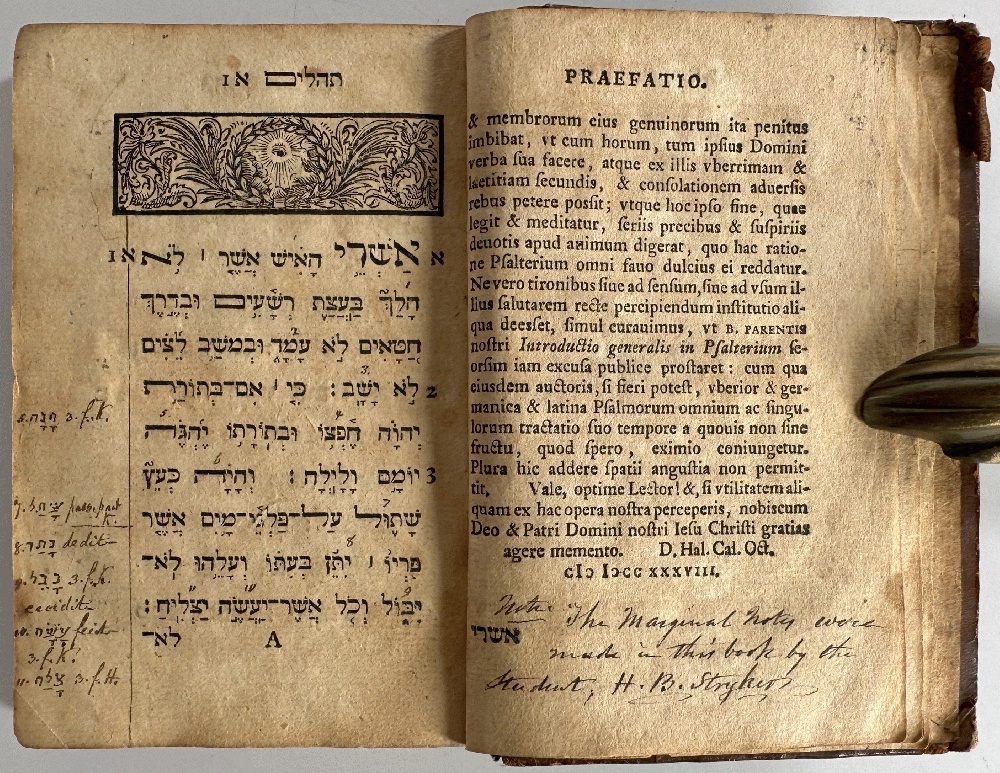 PRAEFATIO.
& membrorum eius genuinorum ita penitus
imbibat, vt cum horum, tum ipſius Domini
verba ſua facere, atque ex illis vberrimam &
laetitiam ſecundis, & conſolationem aduerſis
rebus petere poſſit; vtque hoc ipſo fine, quae
legit & meditatur, ſeriis precibus & ſuſpiriis
deuotis apud animum digerat, quo hac ratio-
ne Pſalterium omni fauo dulcius ei reddatur.
Ne vero tironibus ſiue ad ſenſum, ſiue ad vſum il-
lius ſalutarem recte percipiendum inſtitutio ali-
qua deeſſet, ſimul curauimus, vt B. PARENTIS
noſtri Introductio generalis in Pſalterium ſe-
orſim iam excuſa publice proſtaret: cum qua
eiusdem auctoris, ſi fieri poteſt, vberior & ger-
manica & latina Pſalmorum omnium ac ſingu-
lorum tractatio ſuo tempore a quouis non ſine
fructu, quod ſpero, eximio coniungetur.
Plura hic addere ſpatii anguſtia non permit-
tit. Vale, optime Lector! &, ſi vtilitatem ali-
quam ex hac opera noſtra perceperis, nobiscum
Deo & Patri Domini noſtri Ieſu Chriſti gratias
agere memento. D. Hal. Cal. Oct.
cIↄ Iↄcc XXXVIII.
אשרי
Note. The Marginal Notes were
made in this book by the
Student, H. B. Stryker
תהלים א 1
א אַשְׁרֵי הָאִישׁ אֲשֶׁר ׀ לֹא א 1
הָלַךְ בַּעֲצַת רְשָׁעִים וּבְדֶרֶךְ
חַטָּאִים לֹא עָמָד וּבְמוֹשַׁב לֵצִים
2 לֹא יָשָׁב׃ כִּי ׀ אִם־בְּתוֹרַת
יְהוָה חֶפְצוֹ וּבְתוֹרָתוֹ יֶהְגֶּה
3 יוֹמָם וָלָיְלָה׃ וְהָיָה כְּעֵץ
שָׁתוּל עַל־פַּלְגֵי־מָיִם אֲשֶׁר
פִּרְיוֹ ׀ יִתֵּן בְּעִתּוֹ וְעָלֵהוּ לֹא־
יִבּוֹל וְכֹל אֲשֶׁר־יַעֲשֶׂה יַצְלִיחַ׃
A לא־
3. f. K.
pass. part
K.
dedit
3. f. K.
cecidit
10. עָשָׂה fecit
3. f. K.
11. צָלַח 3. f. H.